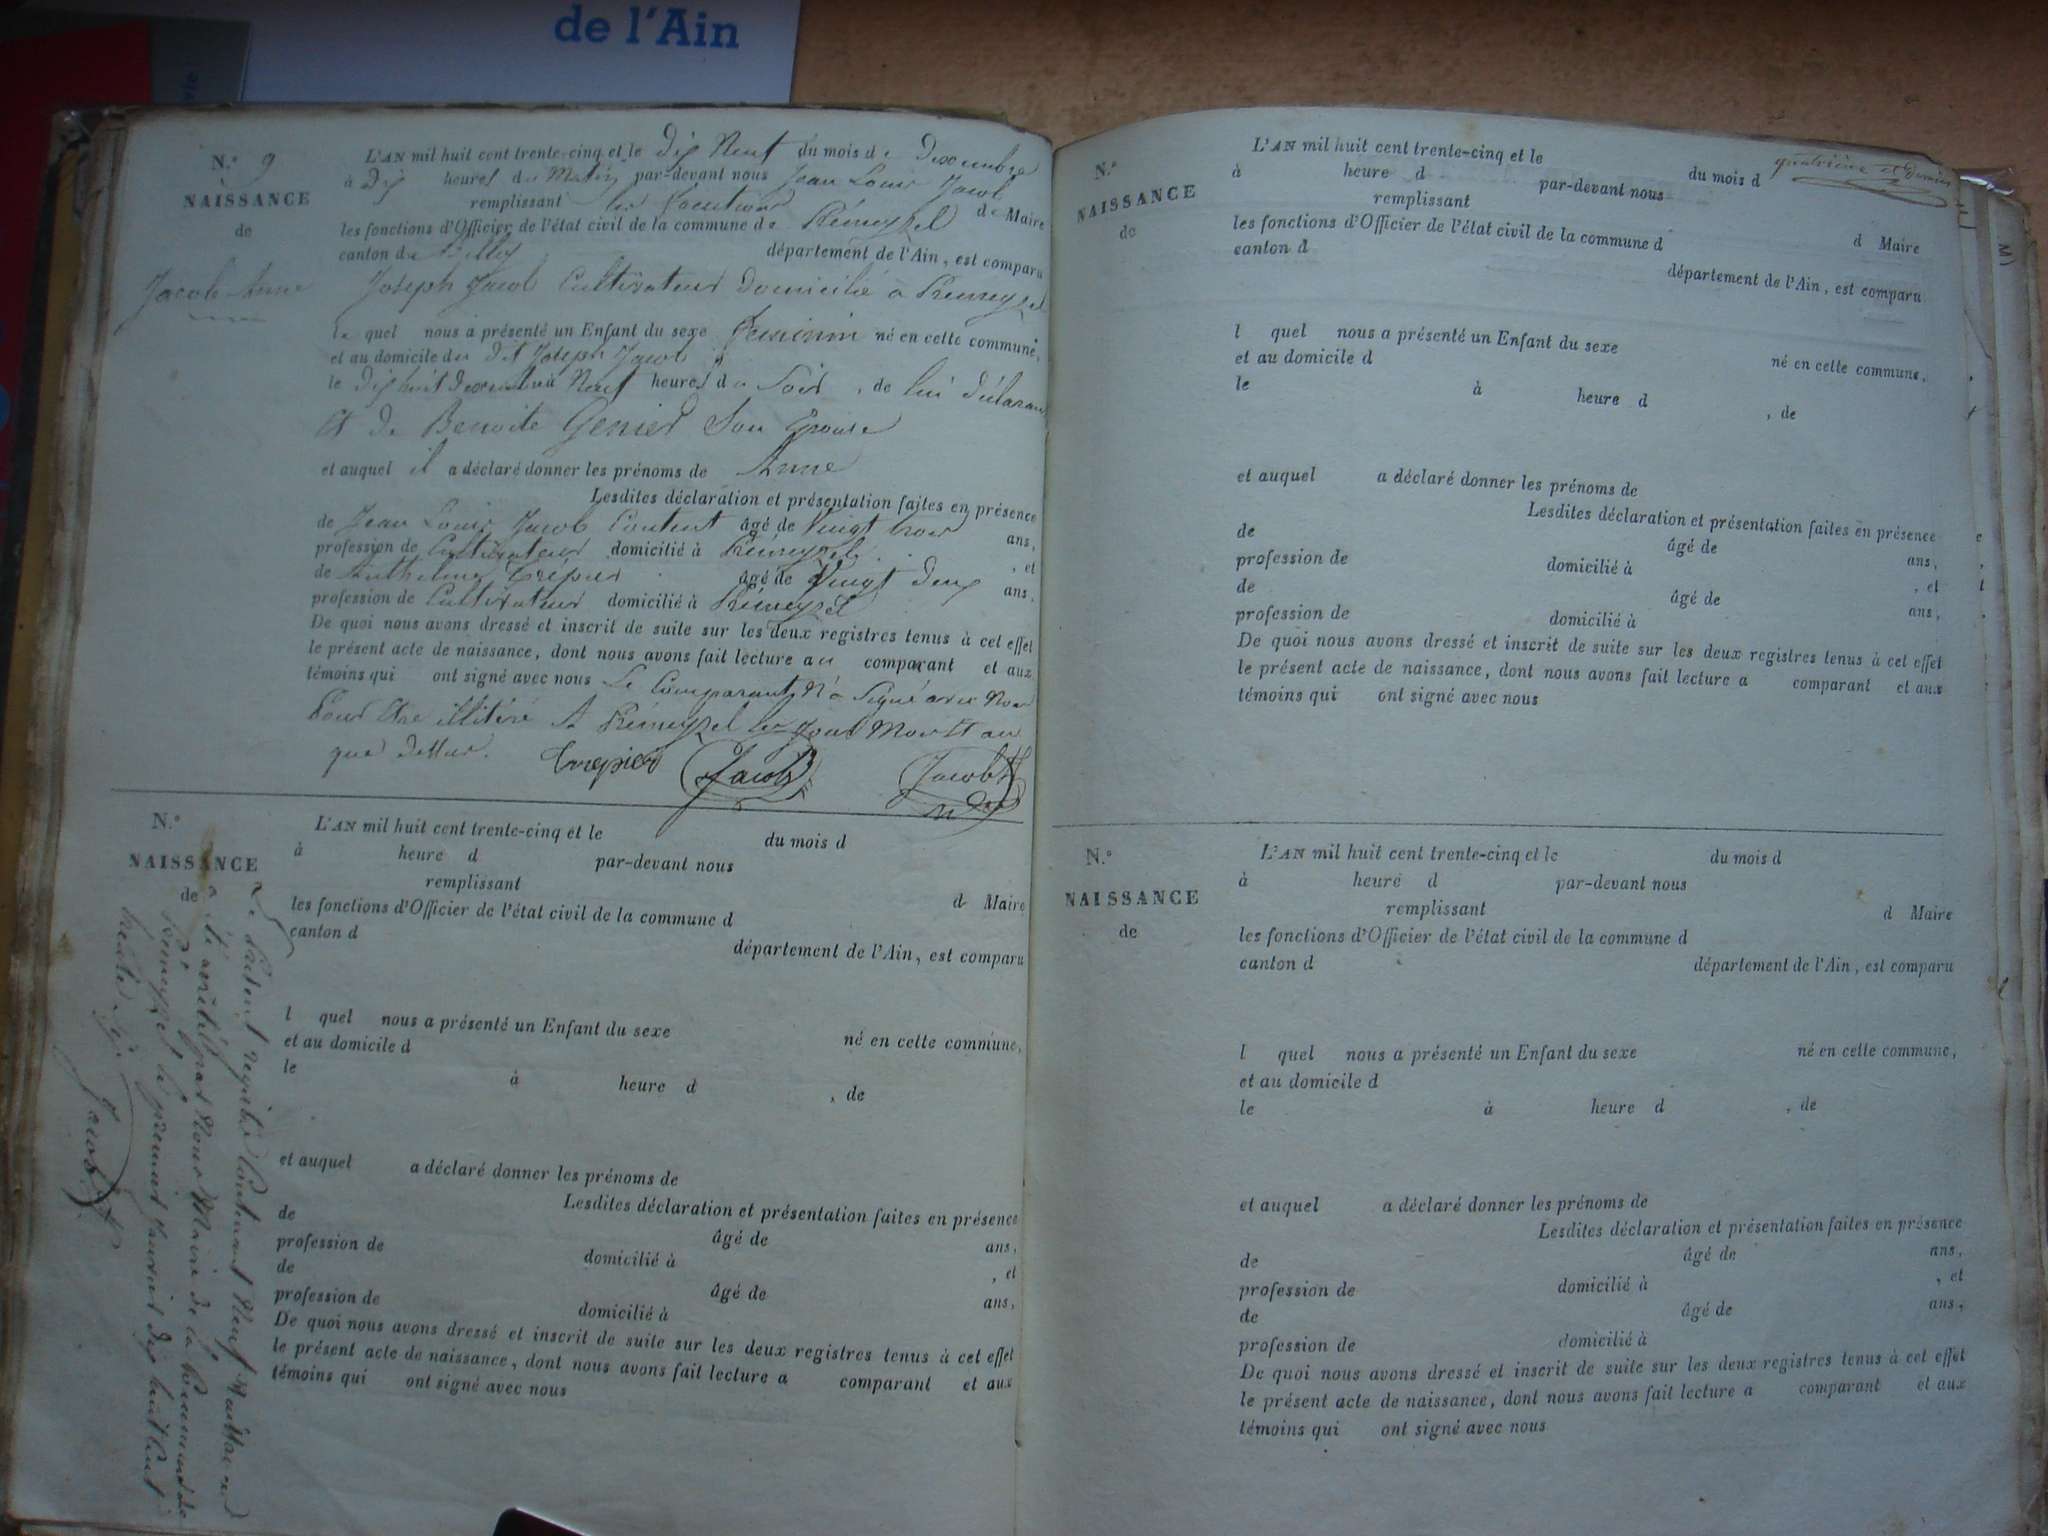 de l'Ain
vie
N.° 9
NAISSANCE
de
Jacob Anne
L'AN mil huit cent trente-cinq et le Dix Neuf du mois de Decembre
à Dix heures du Matin par-devant nous Jean Louis Jacob
remplissant les fonctions de Maire
les fonctions d'Officier de l'état civil de la commune de Prémeyzel
canton de Belley département de l'Ain, est comparu
Joseph Jacob Cultivateur Domicilié à Prémeyzel
le quel nous a présenté un Enfant du sexe feminin né en cette commune,
et au domicile du dit Joseph Jacob
le Dix huit Decembre à Neuf heures du Soir, de lui déclarant
et de Benoite Genier Son Epouse
et auquel il a déclaré donner les prénoms de Anne
Lesdites déclaration et présentation faites en présence
de Jean Louis Jacob âgé de Vingt trois ans,
profession de Cultivateur domicilié à Prémeyzel, et
de Anthelme Trépier âgé de Vingt Deux ans,
profession de Cultivateur domicilié à Prémeyzel
De quoi nous avons dressé et inscrit de suite sur les deux registres tenus à cet effet
le présent acte de naissance, dont nous avons fait lecture au comparant et aux
témoins qui ont signé avec nous Le Comparant N'a Signé avec Nous
Pour Etre illitéré A Prémeyzel les Jour Mois et an
que Dessus.
Trepier Jacob Jacob
N.°
NAISSANCE
de
L'AN mil huit cent trente-cinq et le du mois d
à heure d par-devant nous
remplissant d Maire
les fonctions d'Officier de l'état civil de la commune d
canton d département de l'Ain, est comparu
l quel nous a présenté un Enfant du sexe né en cette commune,
et au domicile d
le à heure d , de
et auquel a déclaré donner les prénoms de
Lesdites déclaration et présentation faites en présence
de âgé de ans,
profession de domicilié à , et
de âgé de ans,
profession de domicilié à
De quoi nous avons dressé et inscrit de suite sur les deux registres tenus à cet effet
le présent acte de naissance, dont nous avons fait lecture a comparant et aux
témoins qui ont signé avec nous
Le Présent registre Contenant Neuf Naissances
a été arrêté par Nous Maire de la Commune de
Prémeyzel le premier Janvier dix huit Cent
trente
Jacob
quatrième et dernier
N.°
NAISSANCE
de
L'AN mil huit cent trente-cinq et le du mois d
à heure d par-devant nous
remplissant d Maire
les fonctions d'Officier de l'état civil de la commune d
canton d département de l'Ain, est comparu
l quel nous a présenté un Enfant du sexe né en cette commune,
et au domicile d
le à heure d , de
et auquel a déclaré donner les prénoms de
Lesdites déclaration et présentation faites en présence
de âgé de ans,
profession de domicilié à , et
de âgé de ans,
profession de domicilié à
De quoi nous avons dressé et inscrit de suite sur les deux registres tenus à cet effet
le présent acte de naissance, dont nous avons fait lecture a comparant et aux
témoins qui ont signé avec nous
N.°
NAISSANCE
de
L'AN mil huit cent trente-cinq et le du mois d
à heure d par-devant nous
remplissant d Maire
les fonctions d'Officier de l'état civil de la commune d
canton d département de l'Ain, est comparu
l quel nous a présenté un Enfant du sexe né en cette commune,
et au domicile d
le à heure d , de
et auquel a déclaré donner les prénoms de
Lesdites déclaration et présentation faites en présence
de âgé de ans,
profession de domicilié à , et
de âgé de ans,
profession de domicilié à
De quoi nous avons dressé et inscrit de suite sur les deux registres tenus à cet effet
le présent acte de naissance, dont nous avons fait lecture a comparant et aux
témoins qui ont signé avec nous